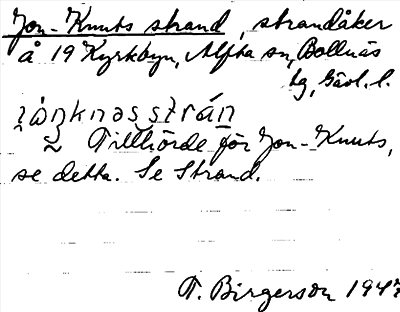 Jon-Knuts strand, strandåker
å 19 Kyrkbyn, Alfta sn, Bollnäs
tg, Gävl. l.
Tillhörde förr Jon-Knuts,
se detta. Se Strand.
T. Birgerson 1947